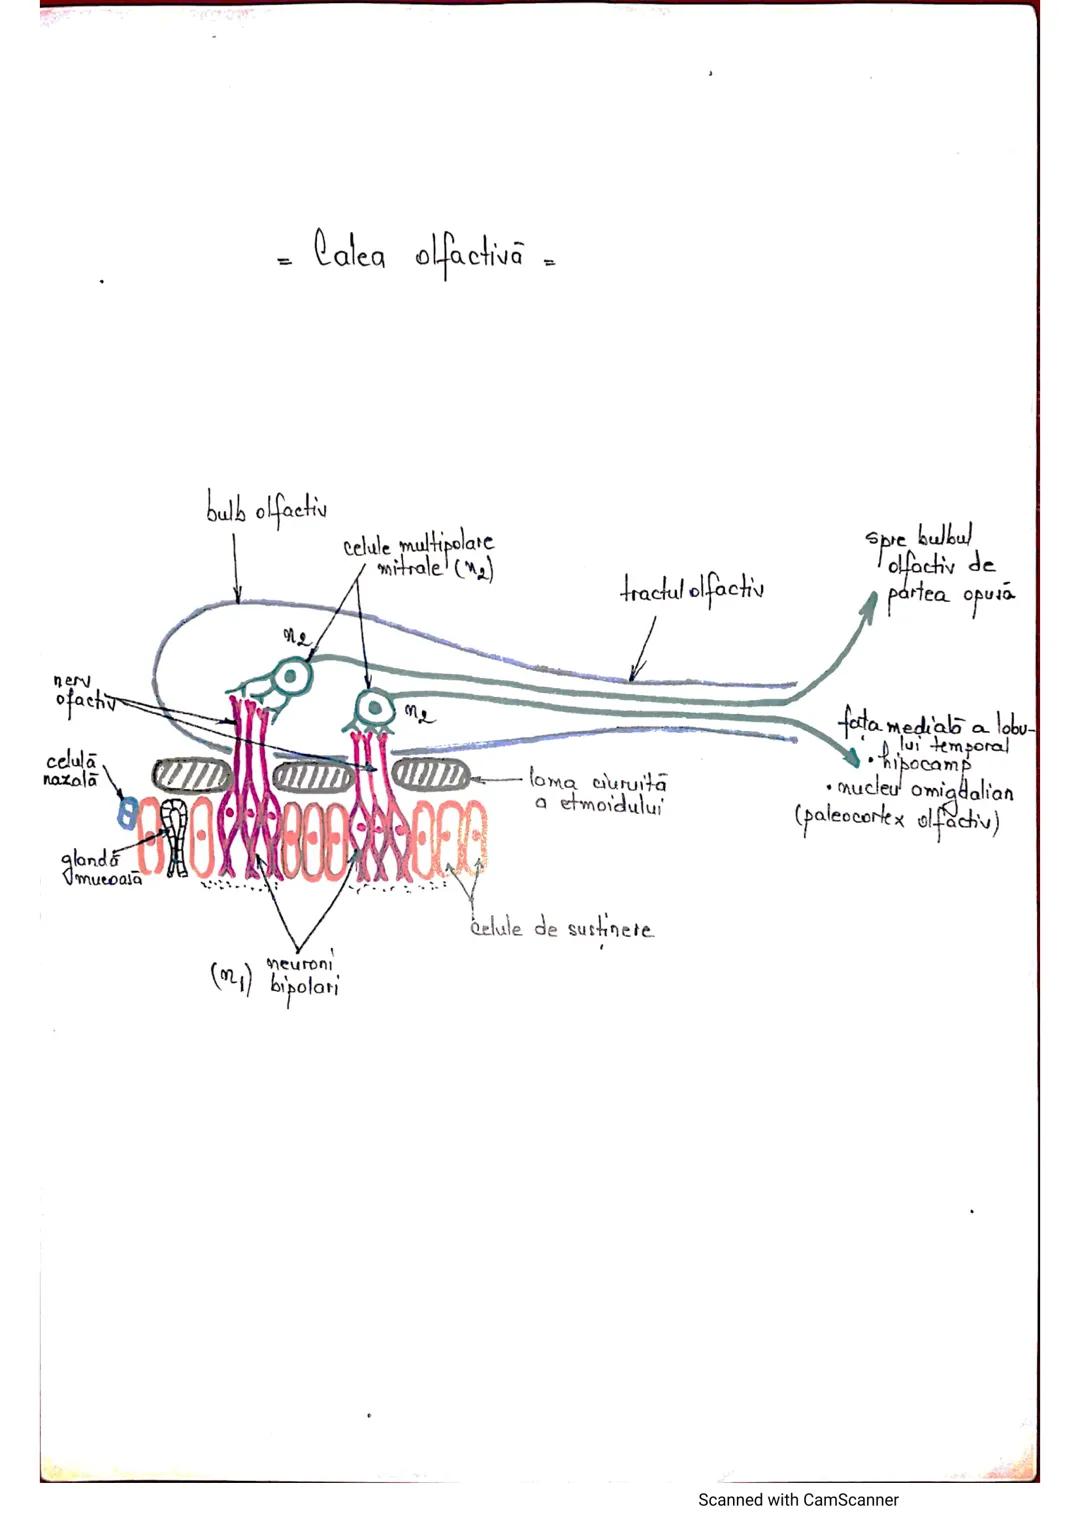 = Calea olfactivă =
bulb olfactiv
celule multipolare
mitrale (n2)
spre bulbul
olfactiv de
partea opusă
tractul olfactiv
n2
nerv
ofactiv
n2
fața medială a lobu-
lui temporal
• hipocamp
• nucleu amigdalian
(paleocortex olfactiv)
celulă
nazală
lama ciuruită
a etmoidului
glandă
mucoasă
celule de susținere
(n1) neuroni
bipolari
Scanned with CamScanner